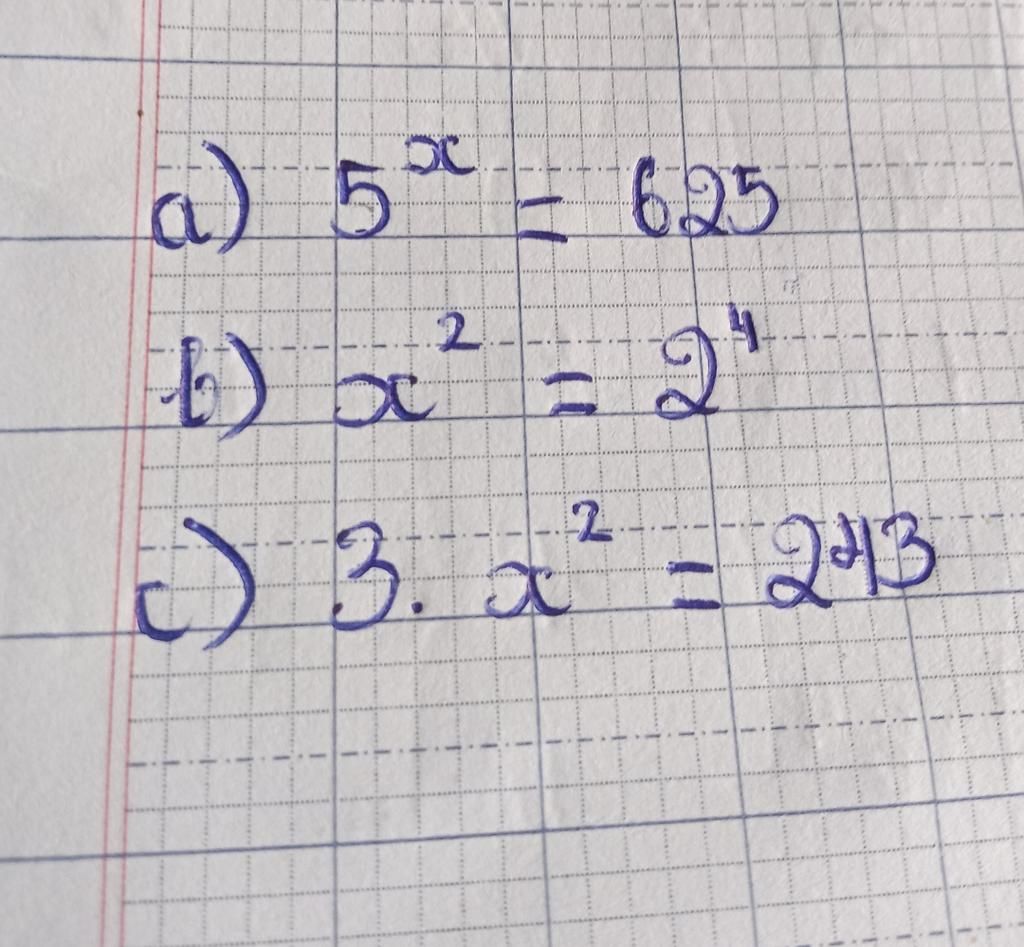 a) 5^x = 625
b) x^2 = 2^4
c) 3. x^2 = 243